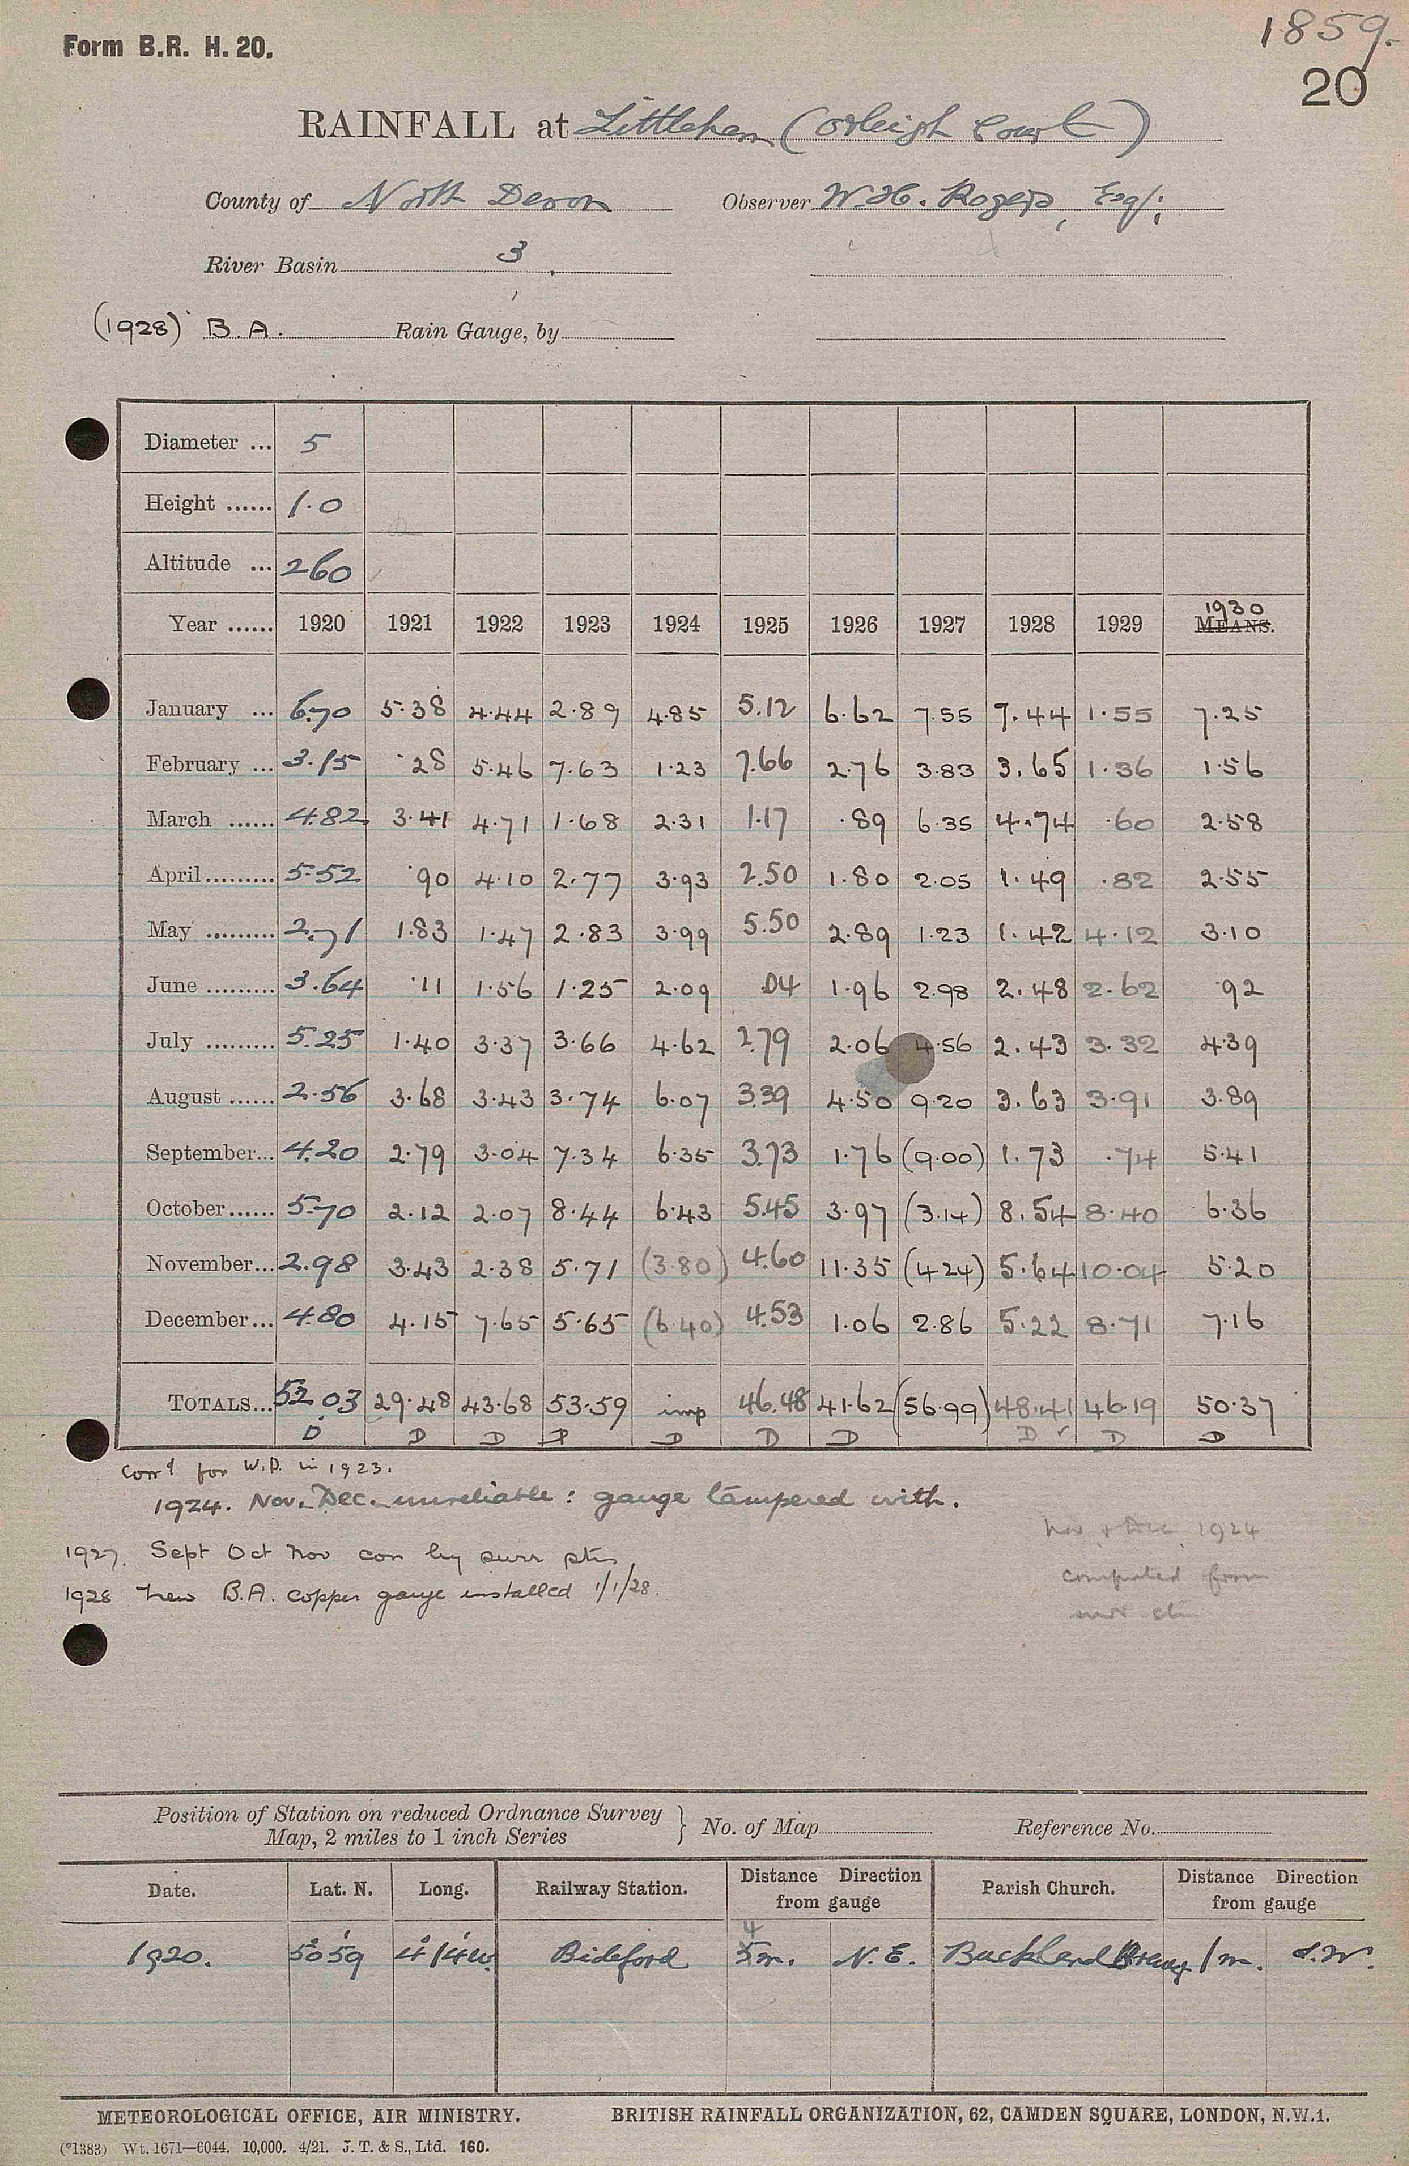 1859.
Form B.R. H. 20.
20
RAINFALL at Littleham (Orleigh Court)
County of North Devon Observer W. H. Rogers, Esq;
River Basin 3.
(1928) B.A. Rain Gauge, by
Diameter ... 5
Height ...... 1.0
Altitude ... 260
Year ...... 1920 1921 1922 1923 1924 1925 1926 1927 1928 1929 1930 MEANS.
January ... 6.70 5.38 4.44 2.89 4.85 5.12 6.62 7.55 7.44 1.55 7.25
February ... 3.15 .28 5.46 7.63 1.23 7.66 2.76 3.83 3.65 1.36 1.56
March ...... 4.82 3.41 4.71 1.68 2.31 1.17 .89 6.35 4.74 .60 2.58
April ......... 5.52 .90 4.10 2.77 3.93 2.50 1.80 2.05 1.49 .82 2.55
May ......... 2.71 1.83 1.47 2.83 3.99 5.50 2.89 1.23 1.42 4.12 3.10
June ......... 3.64 .11 1.56 1.25 2.09 .04 1.96 2.98 2.48 2.62 .92
July ......... 5.25 1.40 3.37 3.66 4.62 2.79 2.06 4.56 2.43 3.32 4.39
August ...... 2.56 3.68 3.43 3.74 6.07 3.39 4.50 9.20 3.63 3.91 3.89
September... 4.20 2.79 3.04 7.34 6.35 3.73 1.76 (9.00) 1.73 .74 5.41
October ...... 5.70 2.12 2.07 8.44 6.43 5.45 3.97 (3.14) 8.54 8.40 6.36
November... 2.98 3.43 2.38 5.71 (3.80) 4.60 11.35 (4.24) 5.64 10.04 5.20
December... 4.80 4.15 7.65 5.65 (6.40) 4.53 1.06 2.86 5.22 8.71 7.16
TOTALS... 52.03 29.48 43.68 53.59 imp 46.48 41.62 (56.99) 48.41 46.19 50.37
D D D D D D D D ✓ D D
Corrd for W.D. in 1923.
1924. Nov. Dec. unreliable: gauge tampered with.
Nov & Dec 1924
1927. Sept Oct Nov con by surr stns
computed from
1928 New B.A. copper gauge installed 1/1/28
surr stn
Position of Station on reduced Ordnance Survey Map, 2 miles to 1 inch Series } No. of Map Reference No.
Date. Lat. N. Long. Railway Station. Distance Direction from gauge Parish Church. Distance Direction from gauge
4
1920. 50°59' 4°14'W. Bideford 5m. N.E. Buckland Brewer 1 m. S.W.
METEOROLOGICAL OFFICE, AIR MINISTRY. BRITISH RAINFALL ORGANIZATION, 62, CAMDEN SQUARE, LONDON, N.W.1.
(*1383) Wt. 1671—6044. 10,000. 4/21. J. T. & S., Ltd. 160.